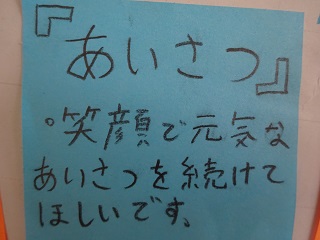 『あいさつ』
。笑顔で元気な
あいさつを続けて
ほしいです。